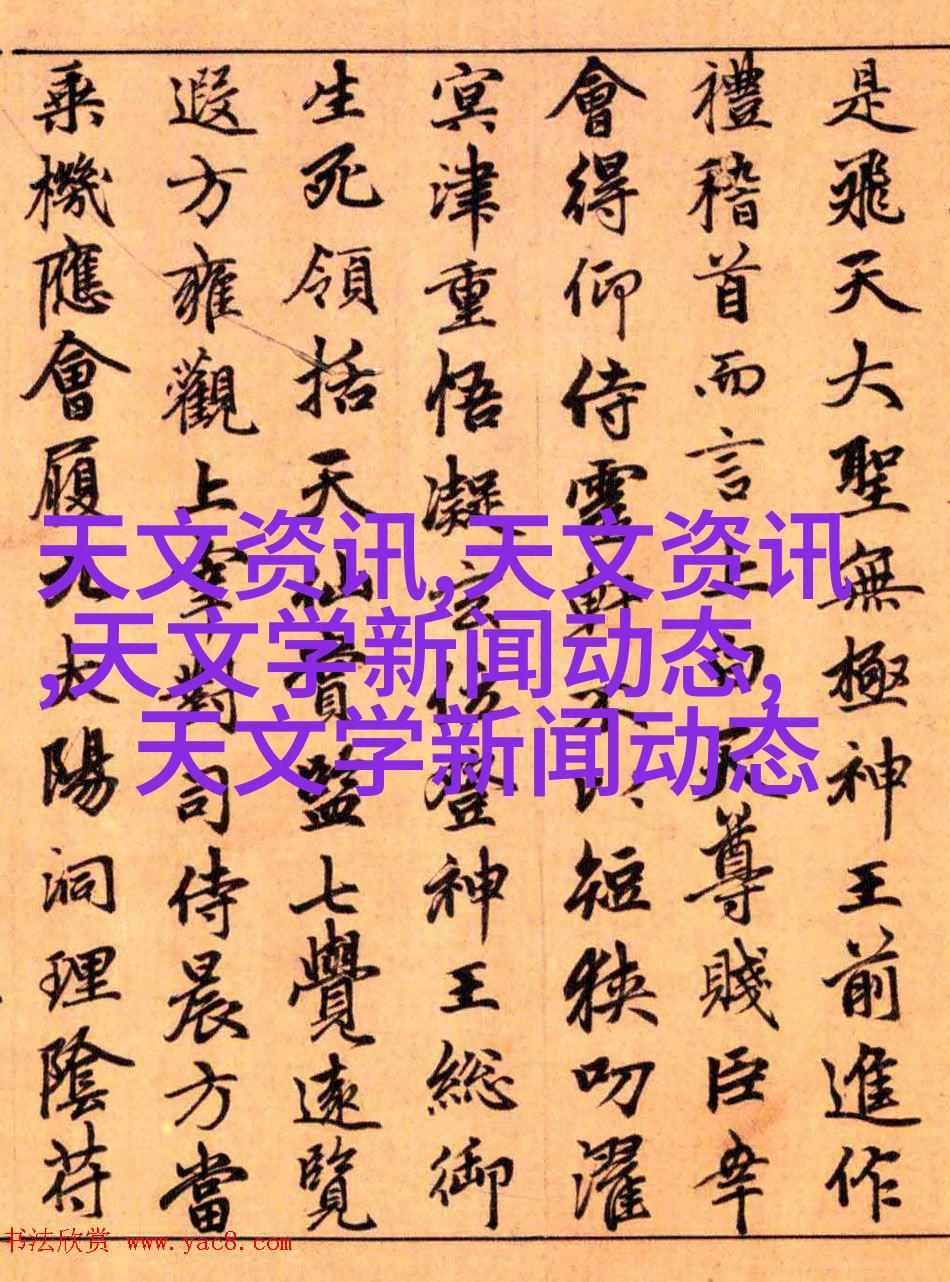 是飛天大聖無極神王前進作
禮稽首而言上白天尊賤臣幸
會得仰侍靈軒不以短狹叨濯
冥津重悟凝玄位登神王総御
生死領括天仙實監七覺遠覽
遐方雍觀上宰對司侍晨方當
乗機應會履九太陽洞理陰苻
天文资讯,天文资讯
,天文学新闻动态,
天文学新闻动态
书法欣赏 www.yac8.com